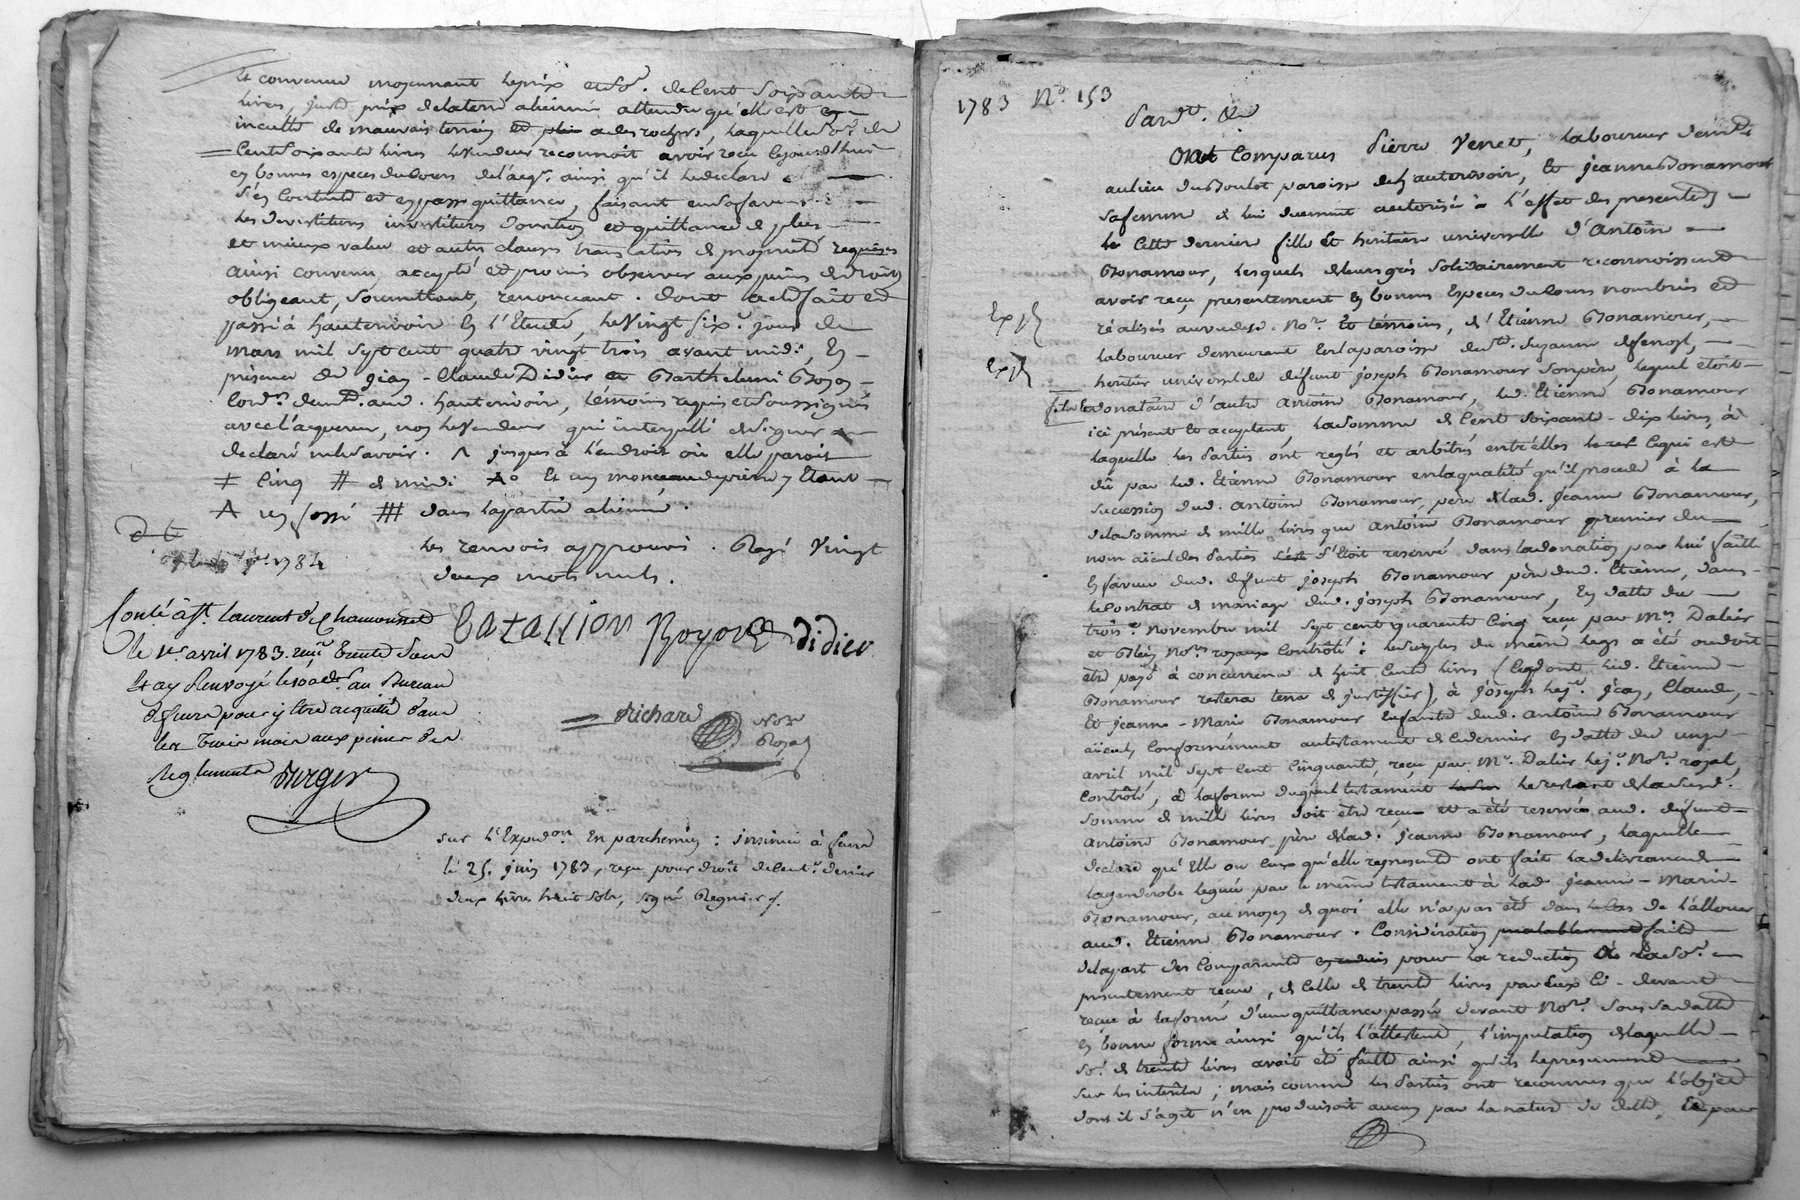 et convenue moyennant le prix et so.e de cent soixante
livres, juste prix de la terre alienée attendu qu'elle est
inculte de mauvais terrein et a des rochers, laquelle so.e de
cent soixante livres le vendeur reconnoit avoir reçu cejourd'hui
en bonnes especes du cours de l'acq.r ainsi qu'il le declare
s'en contente et en passe quittance, faisant en sa faveur
les devestiture investiture donation et quittance de plus
et mieux value et autres clauses translatives de propriété requises
ainsi convenu, accepté et promis observer aux peines de droit
obligeant, soumettant, renonceant. Dont acte fait et
passé à hauterivoir en l'Etude, le vingt six.e jour de
mars mil sept cent quatre vingt trois avant midi, en
présence de jean-Claude Didier et Barthelemi Boyon
cord.rs dem.t aud. hauterivoir, témoins requis et soussignés
avec l'acquereur, non le vendeur qui interpellé de signer a
declaré ne le savoir. Λ jusques à l'endroit où elle paroit
≠ cinq # de midi Et un monceau de pierres y étant
Λ un fossé ⧻ dans la partie alienée.
les renvois approuvés. Rayé vingt
deux mots nuls.
1784
Conlé à S.t Laurent de Chamousset
le 1er avril 1783. reçu trente sous
Et ay renvoyé les 100.e d. au Bureau
de feurs pour y être acquitté dans
les trois mois aux peines des
reglements Durger
Catallion Boyon Didier
Richard No.re Royal
sur l'Expédon. En parchemin : insinué à feurs
le 25. juin 1783, reçu pour droit de cent.e denier
deux livres huit sols, signé Regnier.
1783 N.o 153
Pard.t &c
Ont Comparus Pierre Venet, laboureur dem.t
au lieu du Boulot paroisse de hauterivoir, Et jeanne Bonamour
sa femme de lui duement autorisée à l'effet des presentes
Cette derniere fille Et heritiere universelle d'Antoine
Bonamour, lesquels de leurs grés solidairement reconnoissent
avoir reçu presentement en bonnes Especes du cours nombrées et
réalisées au vu desd. No.re Et témoins, d'Etienne Bonamour,
Exp.é
laboureur demeurant En la paroisse de ste. suzanne
Exp.é
heritier universel de défunt joseph Bonamour son père, lequel étoit
donataire d'autre Antoine Bonamour, led. Etienne Bonamour
ici présent Et acceptant, la somme de Cent soixante-dix livres, à
laquelle les Parties ont reglé et arbitré entr'elles ce qui est
dû par led. Etienne Bonamour en la qualité qu'il procede à la
succession dud. Antoine Bonamour, père de lad. Jeanne Bonamour,
de la somme de mille livres que Antoine Bonamour premier du
nom aïeul des Parties s'étoit reservé dans la donation par lui faite
En faveur dud. défunt joseph Bonamour père dud. Etienne, dans
le Contrat de mariage dud. joseph Bonamour, En datte du
trois.e novembre mil sept cent quarante cinq reçu par M.es Dalier
et Blein No.res royaux Contrôlé : le surplus du même legs a été ou doit
être payé à concurrence de huit cents livres (ce dont led. Etienne
Bonamour restera tenu de justifier), à joseph lej.e jean, Claude,
Et jeanne-Marie Bonamour Enfants dud. antoine Bonamour
aïeul, Conformément au testament de ce dernier En datte du onze
avril mil sept cent cinquante, reçu par M.e Dalier lej.e No.re royal,
Contrôlé, à la forme duquel testament le restant de lad.
somme de mille livres doit être reçu et a été reservée aud. defunt
antoine Bonamour père de lad. jeanne Bonamour, laquelle
declare qu'Elle ou Ceux qu'elle represente ont fait la delivrance de
la garderobe leguée par le même testament à lad. jeanne-Marie
Bonamour, au moyen de quoi elle n'a pas été dans de l'allouer
aud. Etienne Bonamour. Considération faite
de la part des Comparants pour la reduction de lad. so.e
presentement reçue, de celle de trente livres par Eux ci-devant
reçue à la forme d'une quittance passée devant No.re sous sa datte
En bonne forme ainsi qu'ils l'attestent, l'imputation de laquelle
so.e de trente livres avoit été faitte ainsi qu'ils le presument
sur les interêts ; mais comme les Parties ont reconnu que l'objet
dont il s'agit n'en produisoit aucun par la nature de dette, Et pour